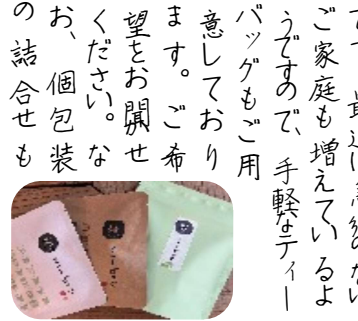 最近は急須のない
ご家庭も増えているよ
うですので、手軽なティー
バッグもご用
意しており
ます。ご希
望をお聞せ
ください。な
お、個包装
の詰合せも